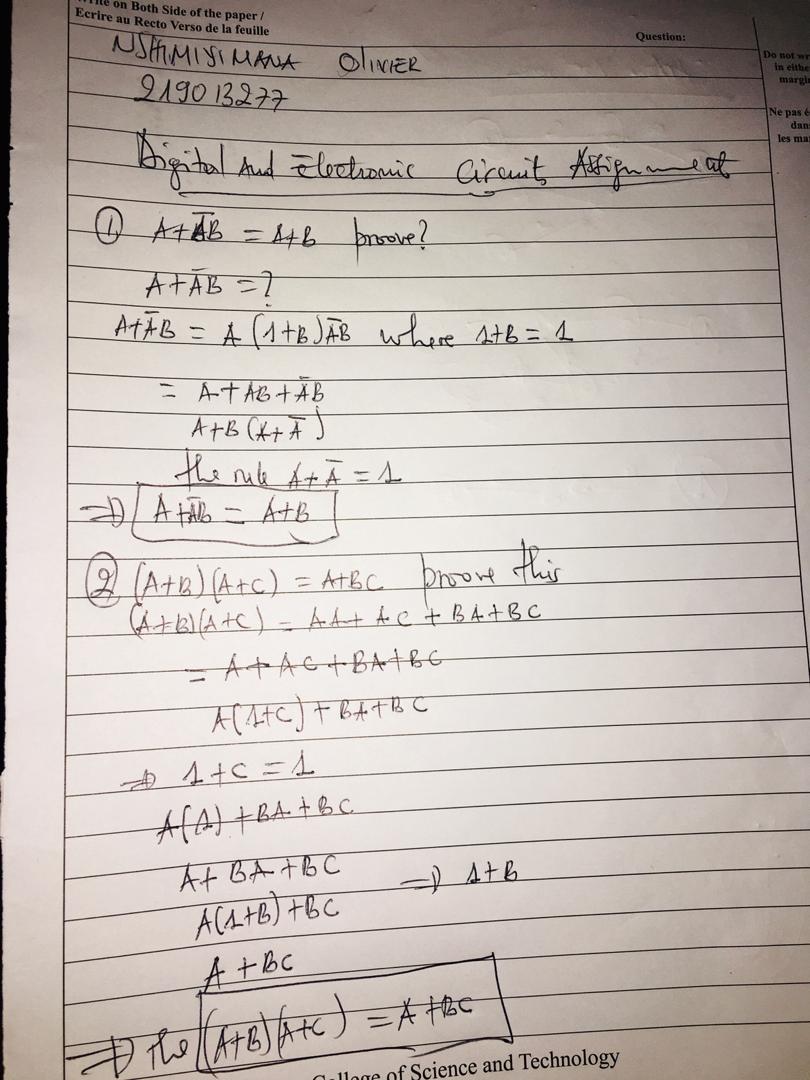 Write on Both Side of the paper /
Ecrire au Recto Verso de la feuille
Question:
Do not wr
in eithe
margin
Ne pas é
dan
les ma
NSHIMIYIMANA OLIVIER
219013277
Digital And Electronic Circuit Assignment
① A+A̅B = A+B proove?
A+A̅B = ?
A+A̅B = A(1+B)A̅B where 1+B = 1
= A+AB+A̅B
A+B(A+A̅)
the rule A+A̅ = 1
⇒ A+A̅B = A+B
② (A+B)(A+C) = A+BC proove this
(A+B)(A+C) = AA+AC+BA+BC
= A+AC+BA+BC
A(1+C)+BA+BC
⇒ 1+C = 1
A(1)+BA+BC
A+BA+BC ⇒ 1+B
A(1+B)+BC
A+BC
⇒ the (A+B)(A+C) = A+BC
College of Science and Technology